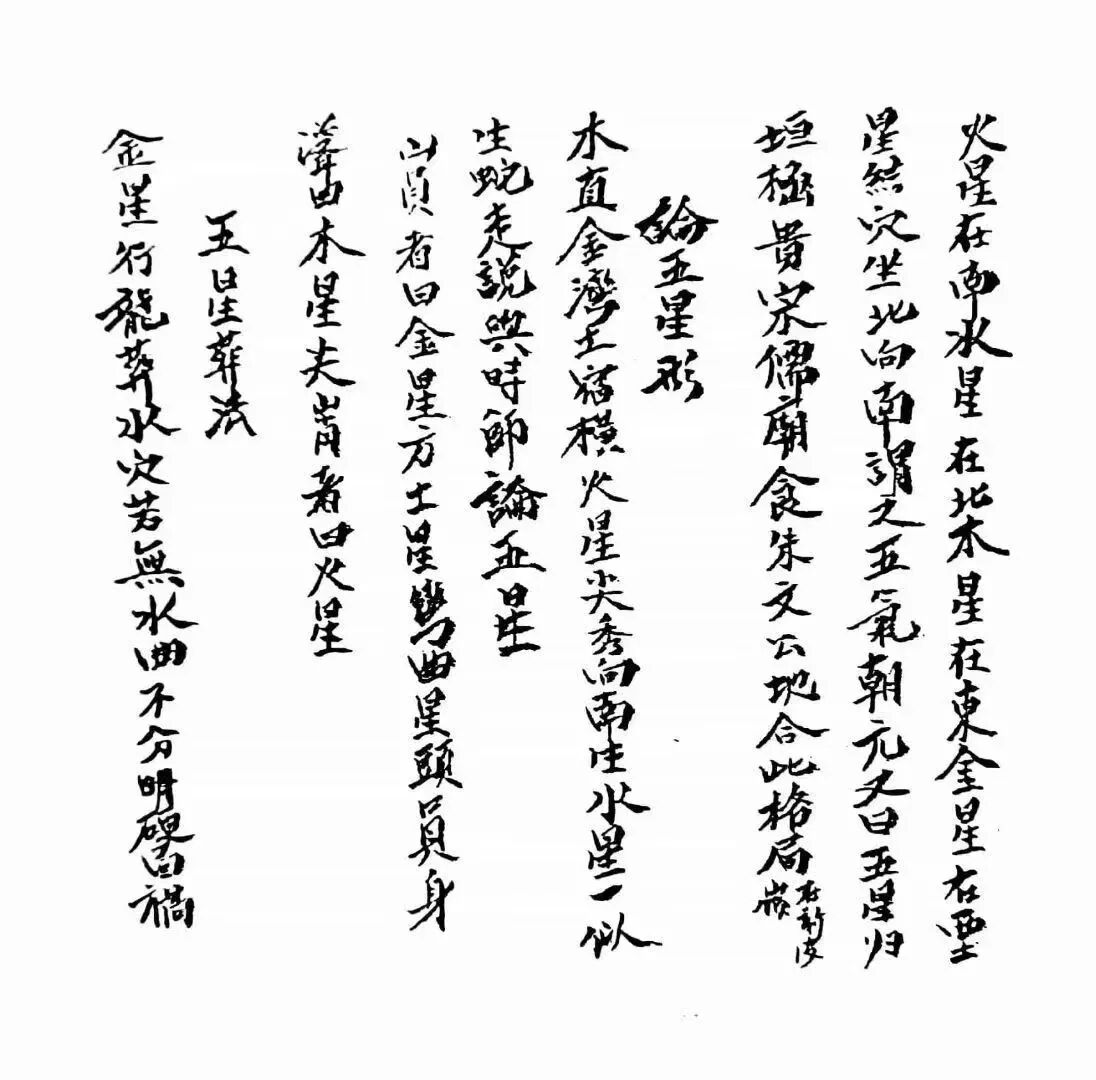 火星在南水星在北木星在東金星在西土
星結穴坐北向南謂之五氣朝元又曰五星归
垣極貴宗儒廟食朱文公地合此格局
論五星形
木直金灣土宿横火星尖秀向南生水星一似
生蛇走說與時師論五星
山員者曰金星方土星彎曲星頭員身
木星尖峭者曰火星
五星葬法
金星行龍葬水穴若無水曲不分明硬面禍